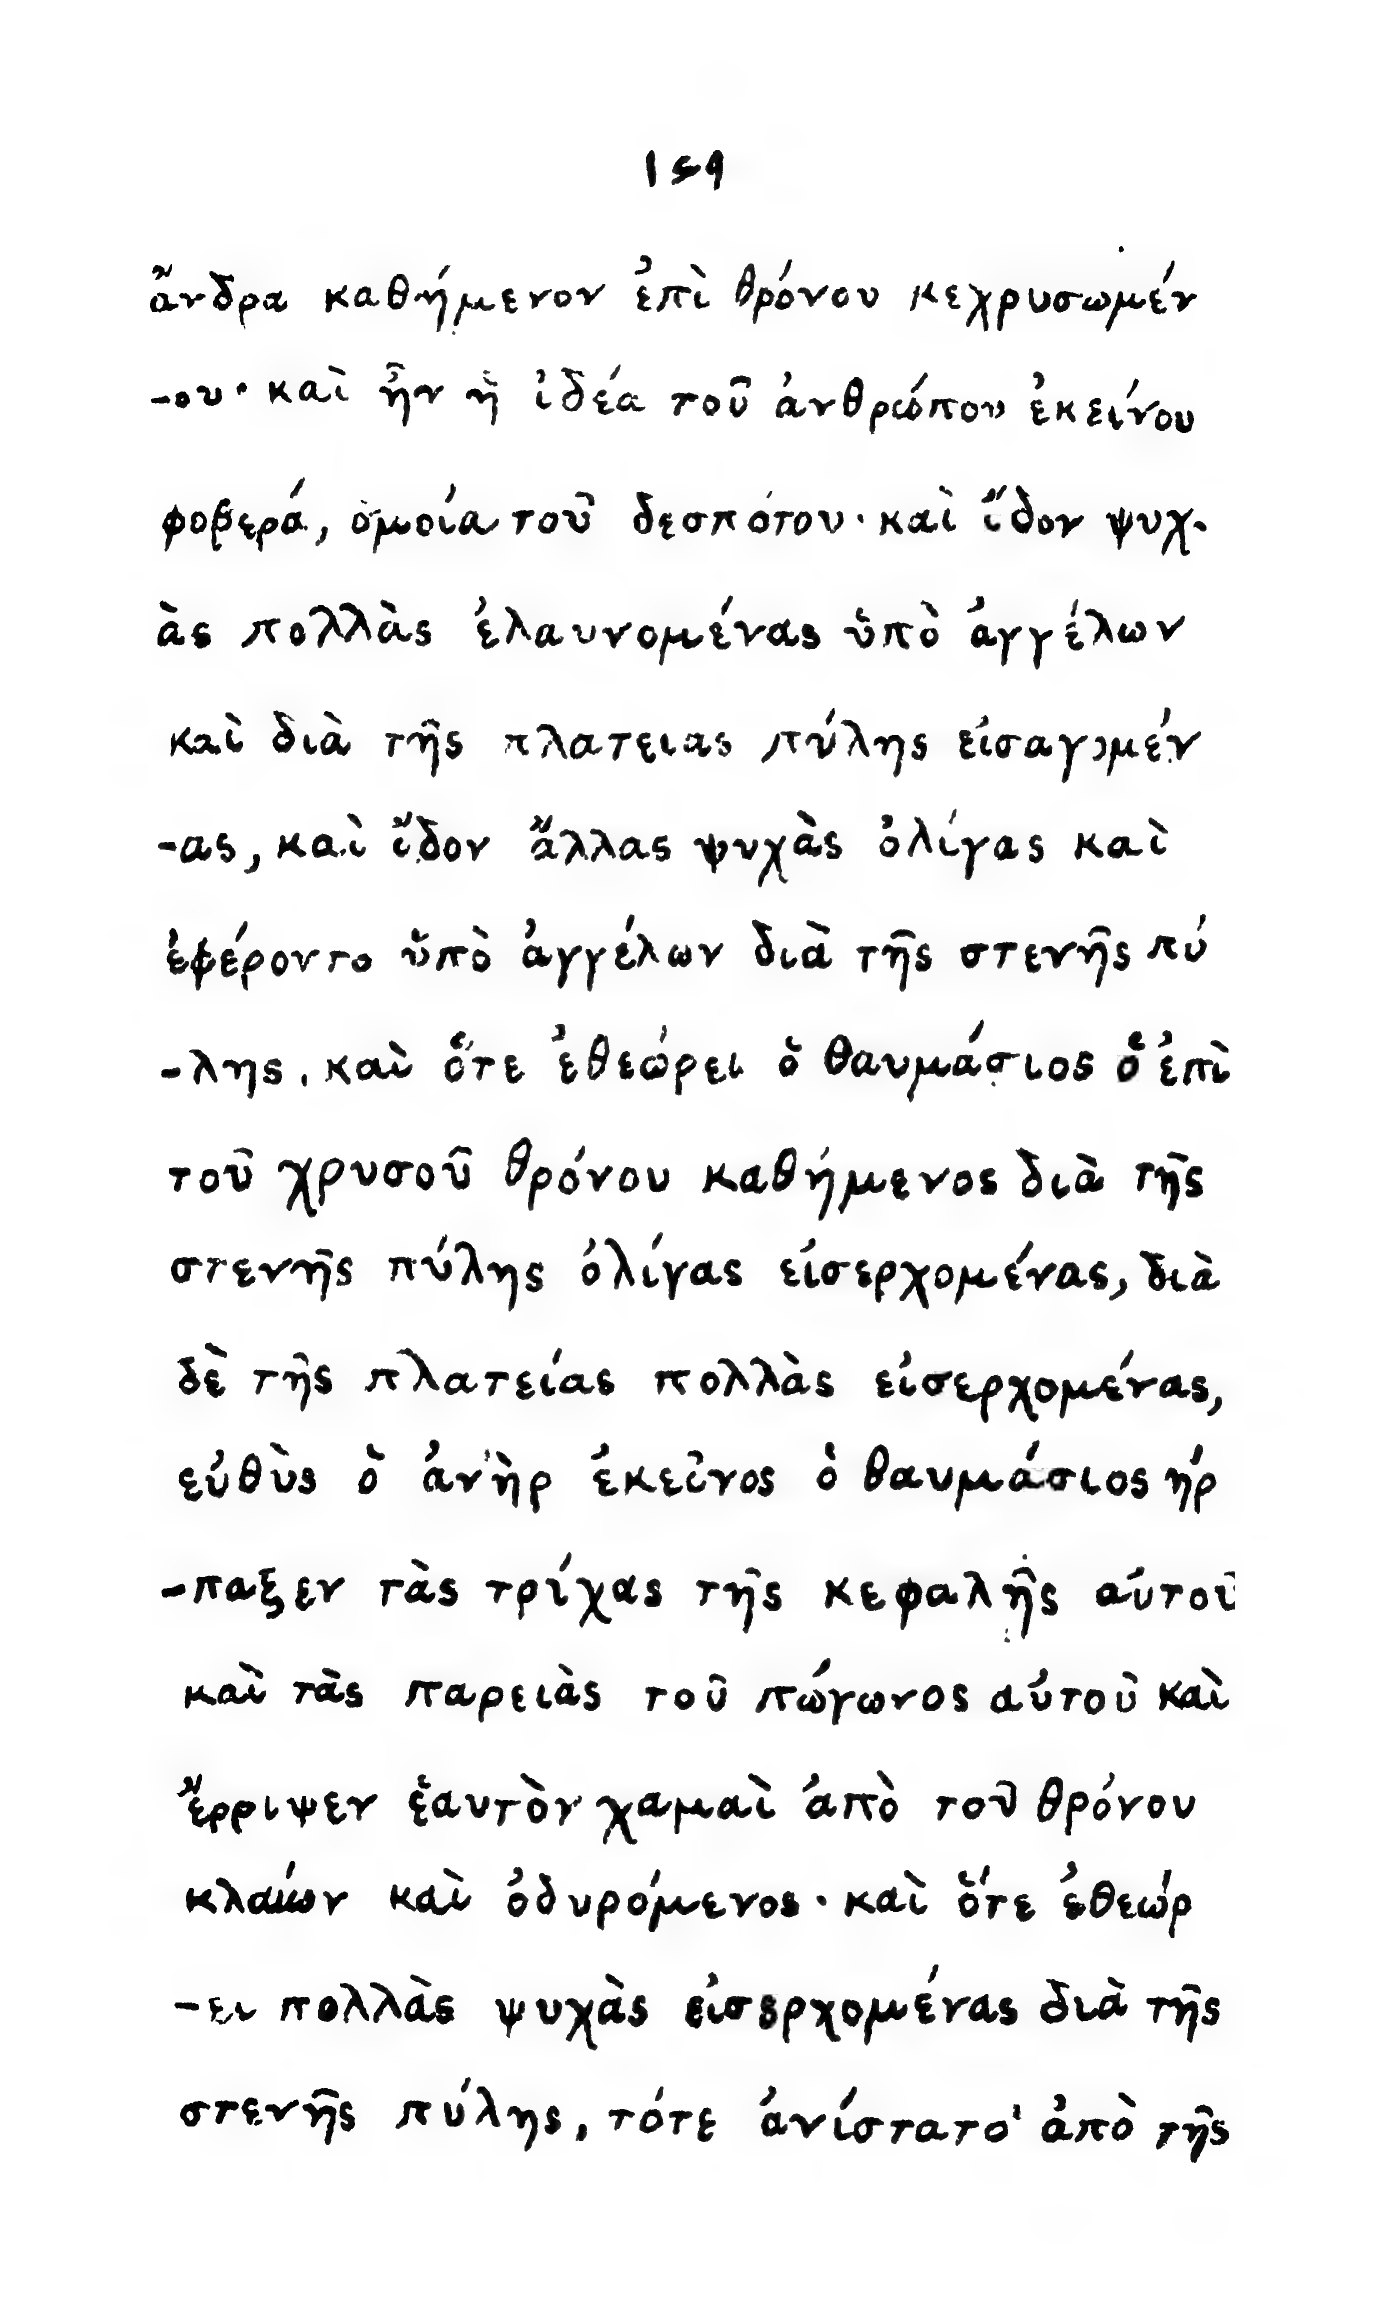 159
ἄνδρα καθήμενον ἐπὶ θρόνου κεχρυσωμέν
-ου· καὶ ἦν ἡ ἰδέα τοῦ ἀνθρώπου ἐκείνου
φοβερά, ὁμοία τοῦ δεσπότου· καὶ ἴδον ψυχ-
ὰς πολλὰς ἐλαυνομένας ὑπὸ ἀγγέλων
καὶ διὰ τῆς πλατειας πύλης εἰσαγομέν
-ας, καὶ ἴδον ἄλλας ψυχὰς ὀλίγας καὶ
ἐφέροντο ὑπὸ ἀγγέλων διὰ τῆς στενῆς πύ
-λης. καὶ ὅτε ἐθεώρει ὁ θαυμάσιος ὁ ἐπὶ
τοῦ χρυσοῦ θρόνου καθήμενος διὰ τῆς
στενῆς πύλης ὀλίγας εἰσερχομένας, διὰ
δὲ τῆς πλατείας πολλὰς εἰσερχομένας,
εὐθὺς ὁ ἀνὴρ ἐκεῖνος ὁ θαυμάσιος ἥρ
-παξεν τὰς τρίχας τῆς κεφαλῆς αὐτοῦ
καὶ τὰς παρειὰς τοῦ πώγωνος αὐτοῦ καὶ
ἔρριψεν ἑαυτὸν χαμαὶ ἀπὸ τοῦ θρόνου
κλαίων καὶ ὀδυρόμενος· καὶ ὅτε ἐθεώρ
-ει πολλὰς ψυχὰς εἰσερχομένας διὰ τῆς
στενῆς πύλης, τότε ἀνίστατο ἀπὸ τῆς